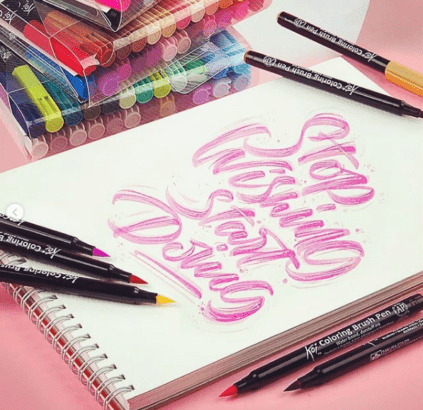 Stop
Wishing
Start
Doing
Coloring Brush Pen
Coloring Brush Pen
Coloring Brush
Coloring Brus
Coloring Brush Pen